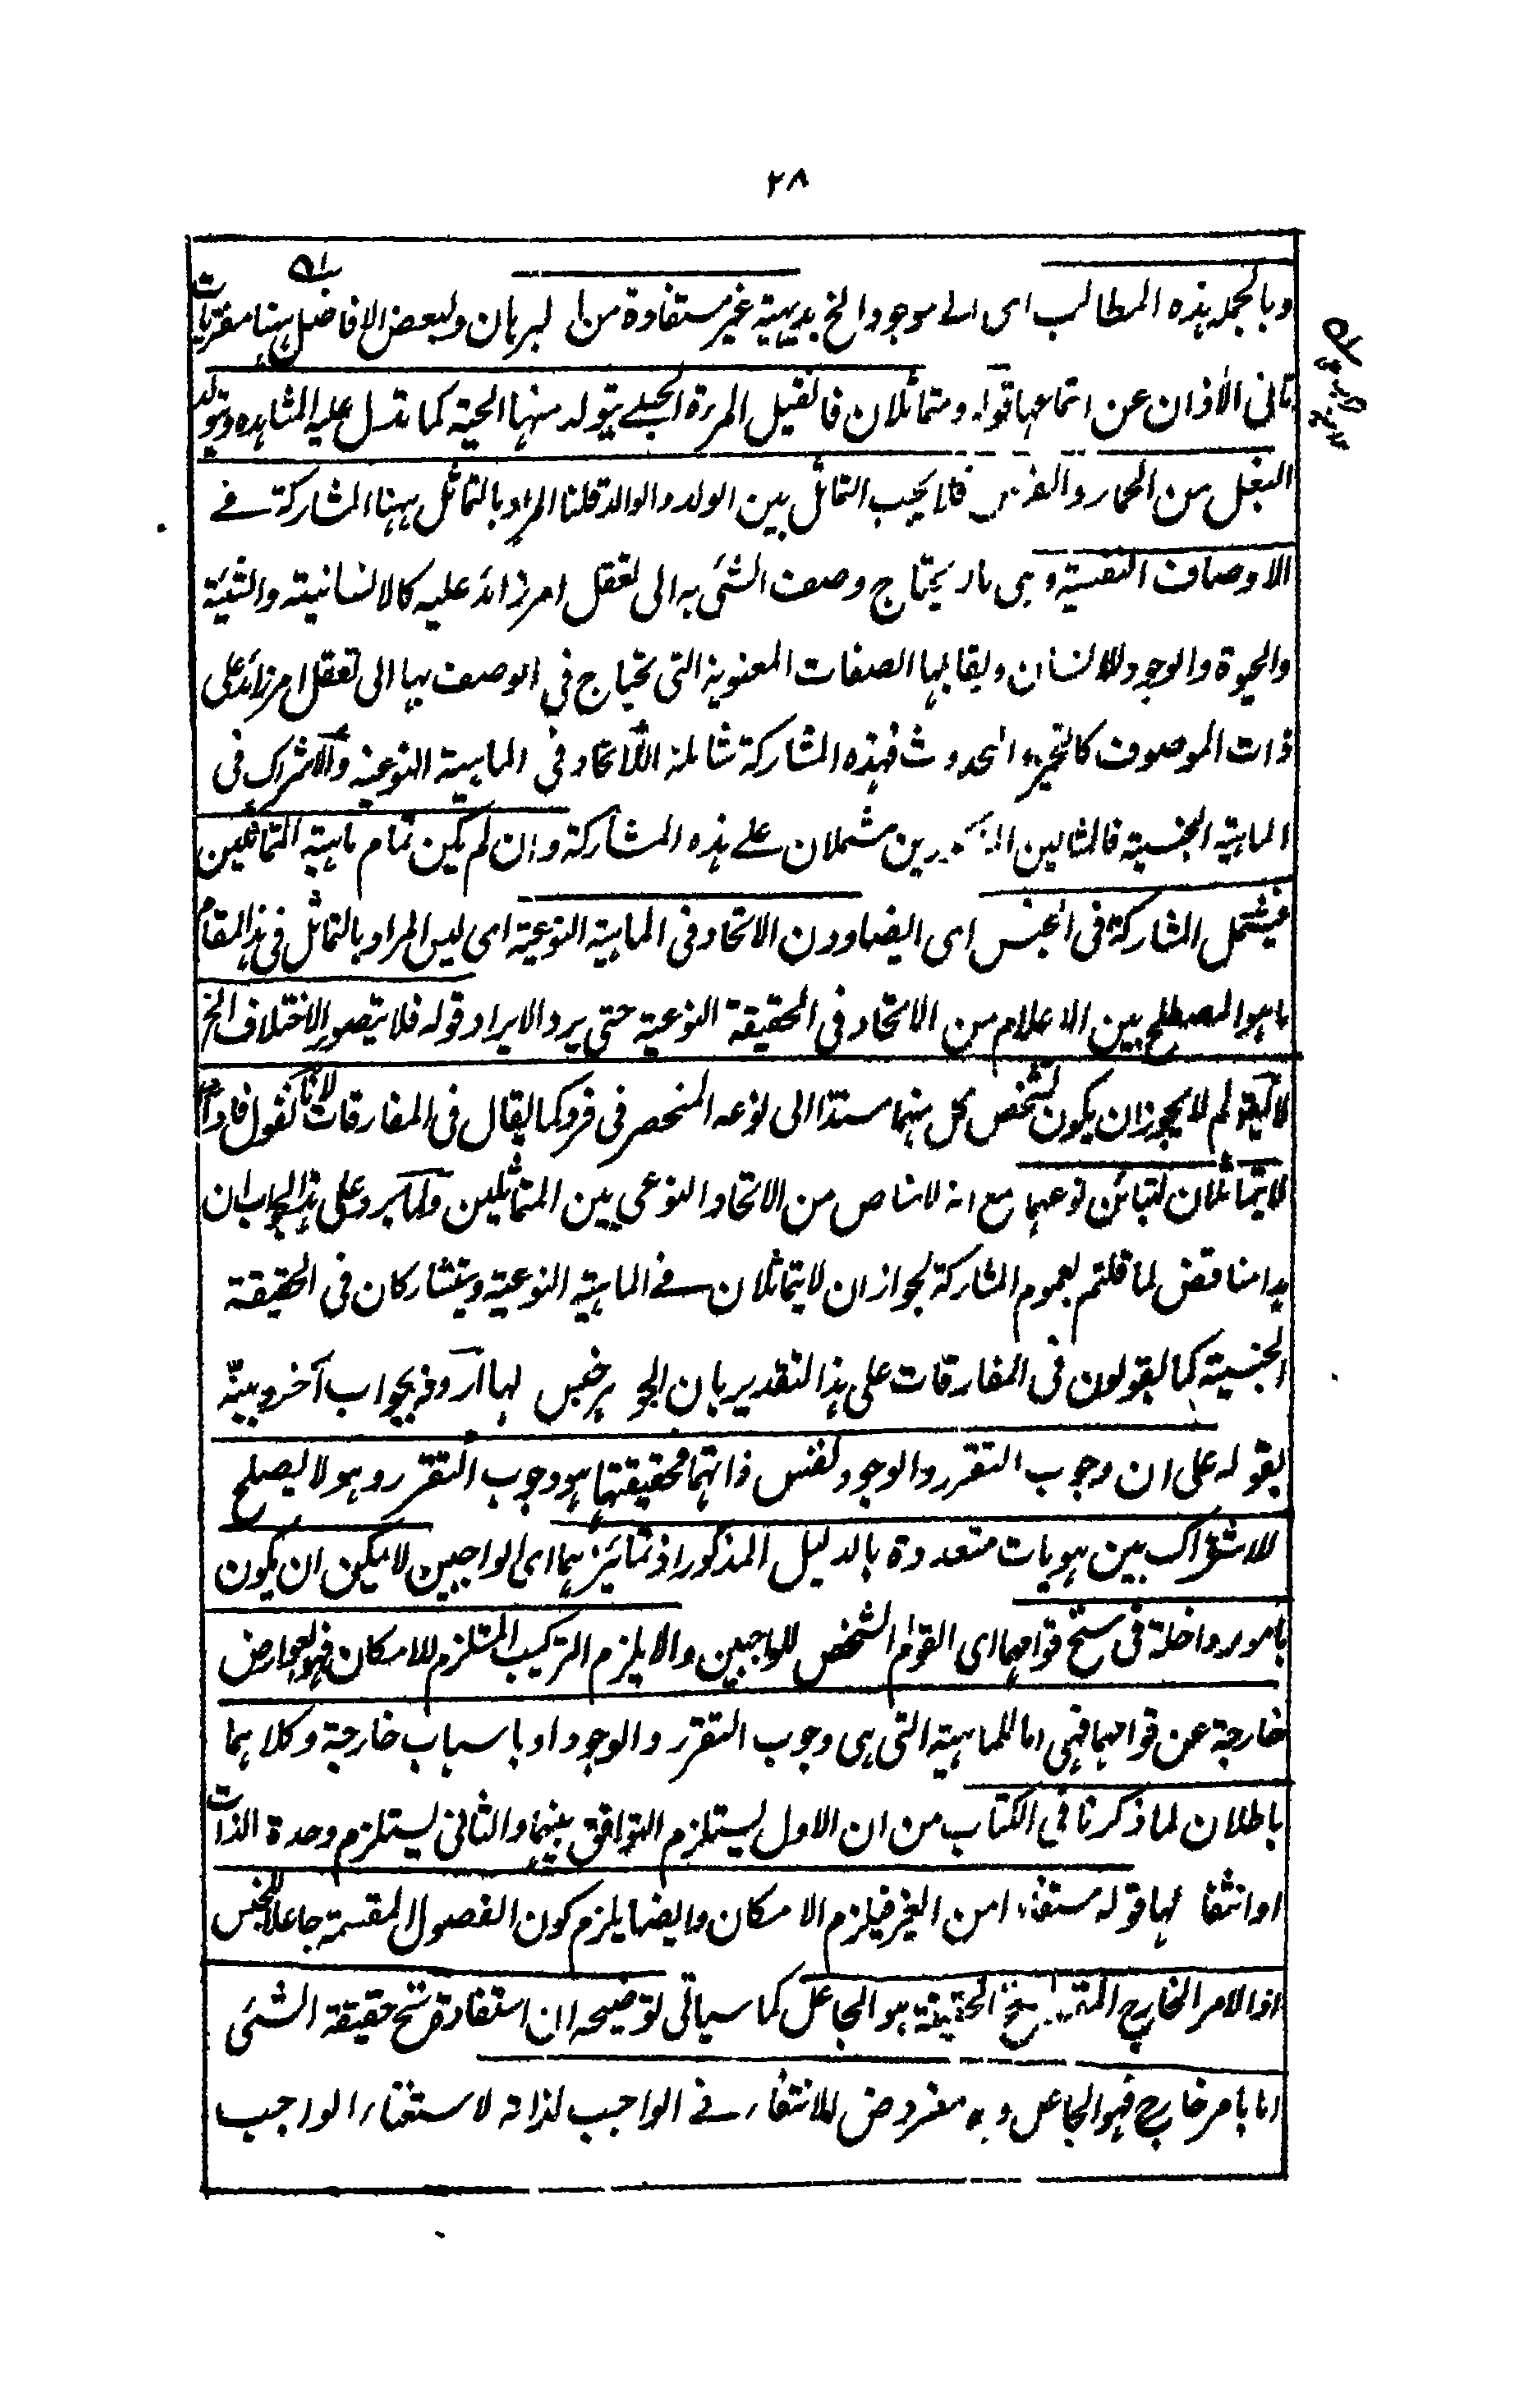 ٢٨
وبالجملة هذه المطالب اى اله موجود الخ بديهية غير مستفادة من البرهان ولبعض الافاضل ههنا مفتريات
تابى الآذان عن استماعها قوله ومتماثلان فان قيل المرة الحبلى يتولد منها الحية كما تدل عليه المشاهدة ويتولد
البغل من الحمار والفرس فلا يجب التماثل بين الولد والوالد قلنا المراد بالتماثل ههنا المشاركة فے
الاوصاف النفسية وهى ما يحتاج وصف الشئ به الى تعقل امر زائد عليه كالانسانية والشيئية
والحيوة والوجود للانسان ويقابلها الصفات المعنوية التى تحتاج فى الوصف بها الى تعقل امر زائد على
ذات الموصوف كالتحيز والحدوث فهذه المشاركة شاملة للاتحاد فى الماهية النوعية والاشتراك فى
الماهية الجنسية فالمثالين المذكورين مشملان علے هذه المشاركة وان لم يكن تمام ماهية المتماثلين
فيشتمل المشاركة فى الجنس اى ايضا ودن الاتحاد فى الماهية النوعية اى ليس المراد بالتماثل فى هذا المقام
ما هو المصطلح بين الاعلام من الاتحاد فى الحقيقة النوعية حتى يرد الايراد قوله فلا يتصور الاختلاف الخ
لا يقولهم لا يجوز ان يكون تشخص كل منهما مستندا الى نوعه المنحصر فى فرد كما يقال فى المفارقات لانا نقول فاذا
لا يتماثلان لتبائن نوعهما مع انه لا مناص من الاتحاد النوعى بين المتماثلين ولما يرد على هذا الجواب ان
هذا مناقض لما قلتم بعموم المشاركة لجواز ان لا يتماثلان فے الماهية النوعية ويتشاركان فى الحقيقة
الجنسية كما يقولون فى المفارقات على هذا التقدير بان الجوهر جنس لها اردفه بجواب آخر وبينه
بقوله على ان وجوب التقرر والوجود لنفس ذاتهما فحقيقتهما هو وجوب التقرر وهو لا يصلح
للاشتراك بين هويات متعددة بالدليل المذكور اذ تمائزهما اى الواجبين لا يمكن ان يكون
بامور داخلة فى سنخ قوامهما اى القوام الشخص للواجبين والا يلزم التركيب المستلزم للامكان فهو لعوارض
خارجة عن قوامهما فهى اما للماهية التى هى وجوب التقرر والوجود او باسباب خارجة وكلاهما
باطلان لما ذكرنا فى الكتاب من ان الاول يستلزم التوافق بينهما والثانى يستلزم وحدة الذات
او انتفائها قوله مستفادا من الغير فيلزم الامكان وايضا يلزم كون الفصول المقسمة جاعلا للجنس
اذ الامر الخارج سنخ الحقيقة هو الجاعل كما سياتى توضيحه ان استفادة سنخ حقيقة الشئى
اما بامر خارج فهو الجاعل و مفروض للانتفاء فے الواجب لذاته لاستغناء الواجب